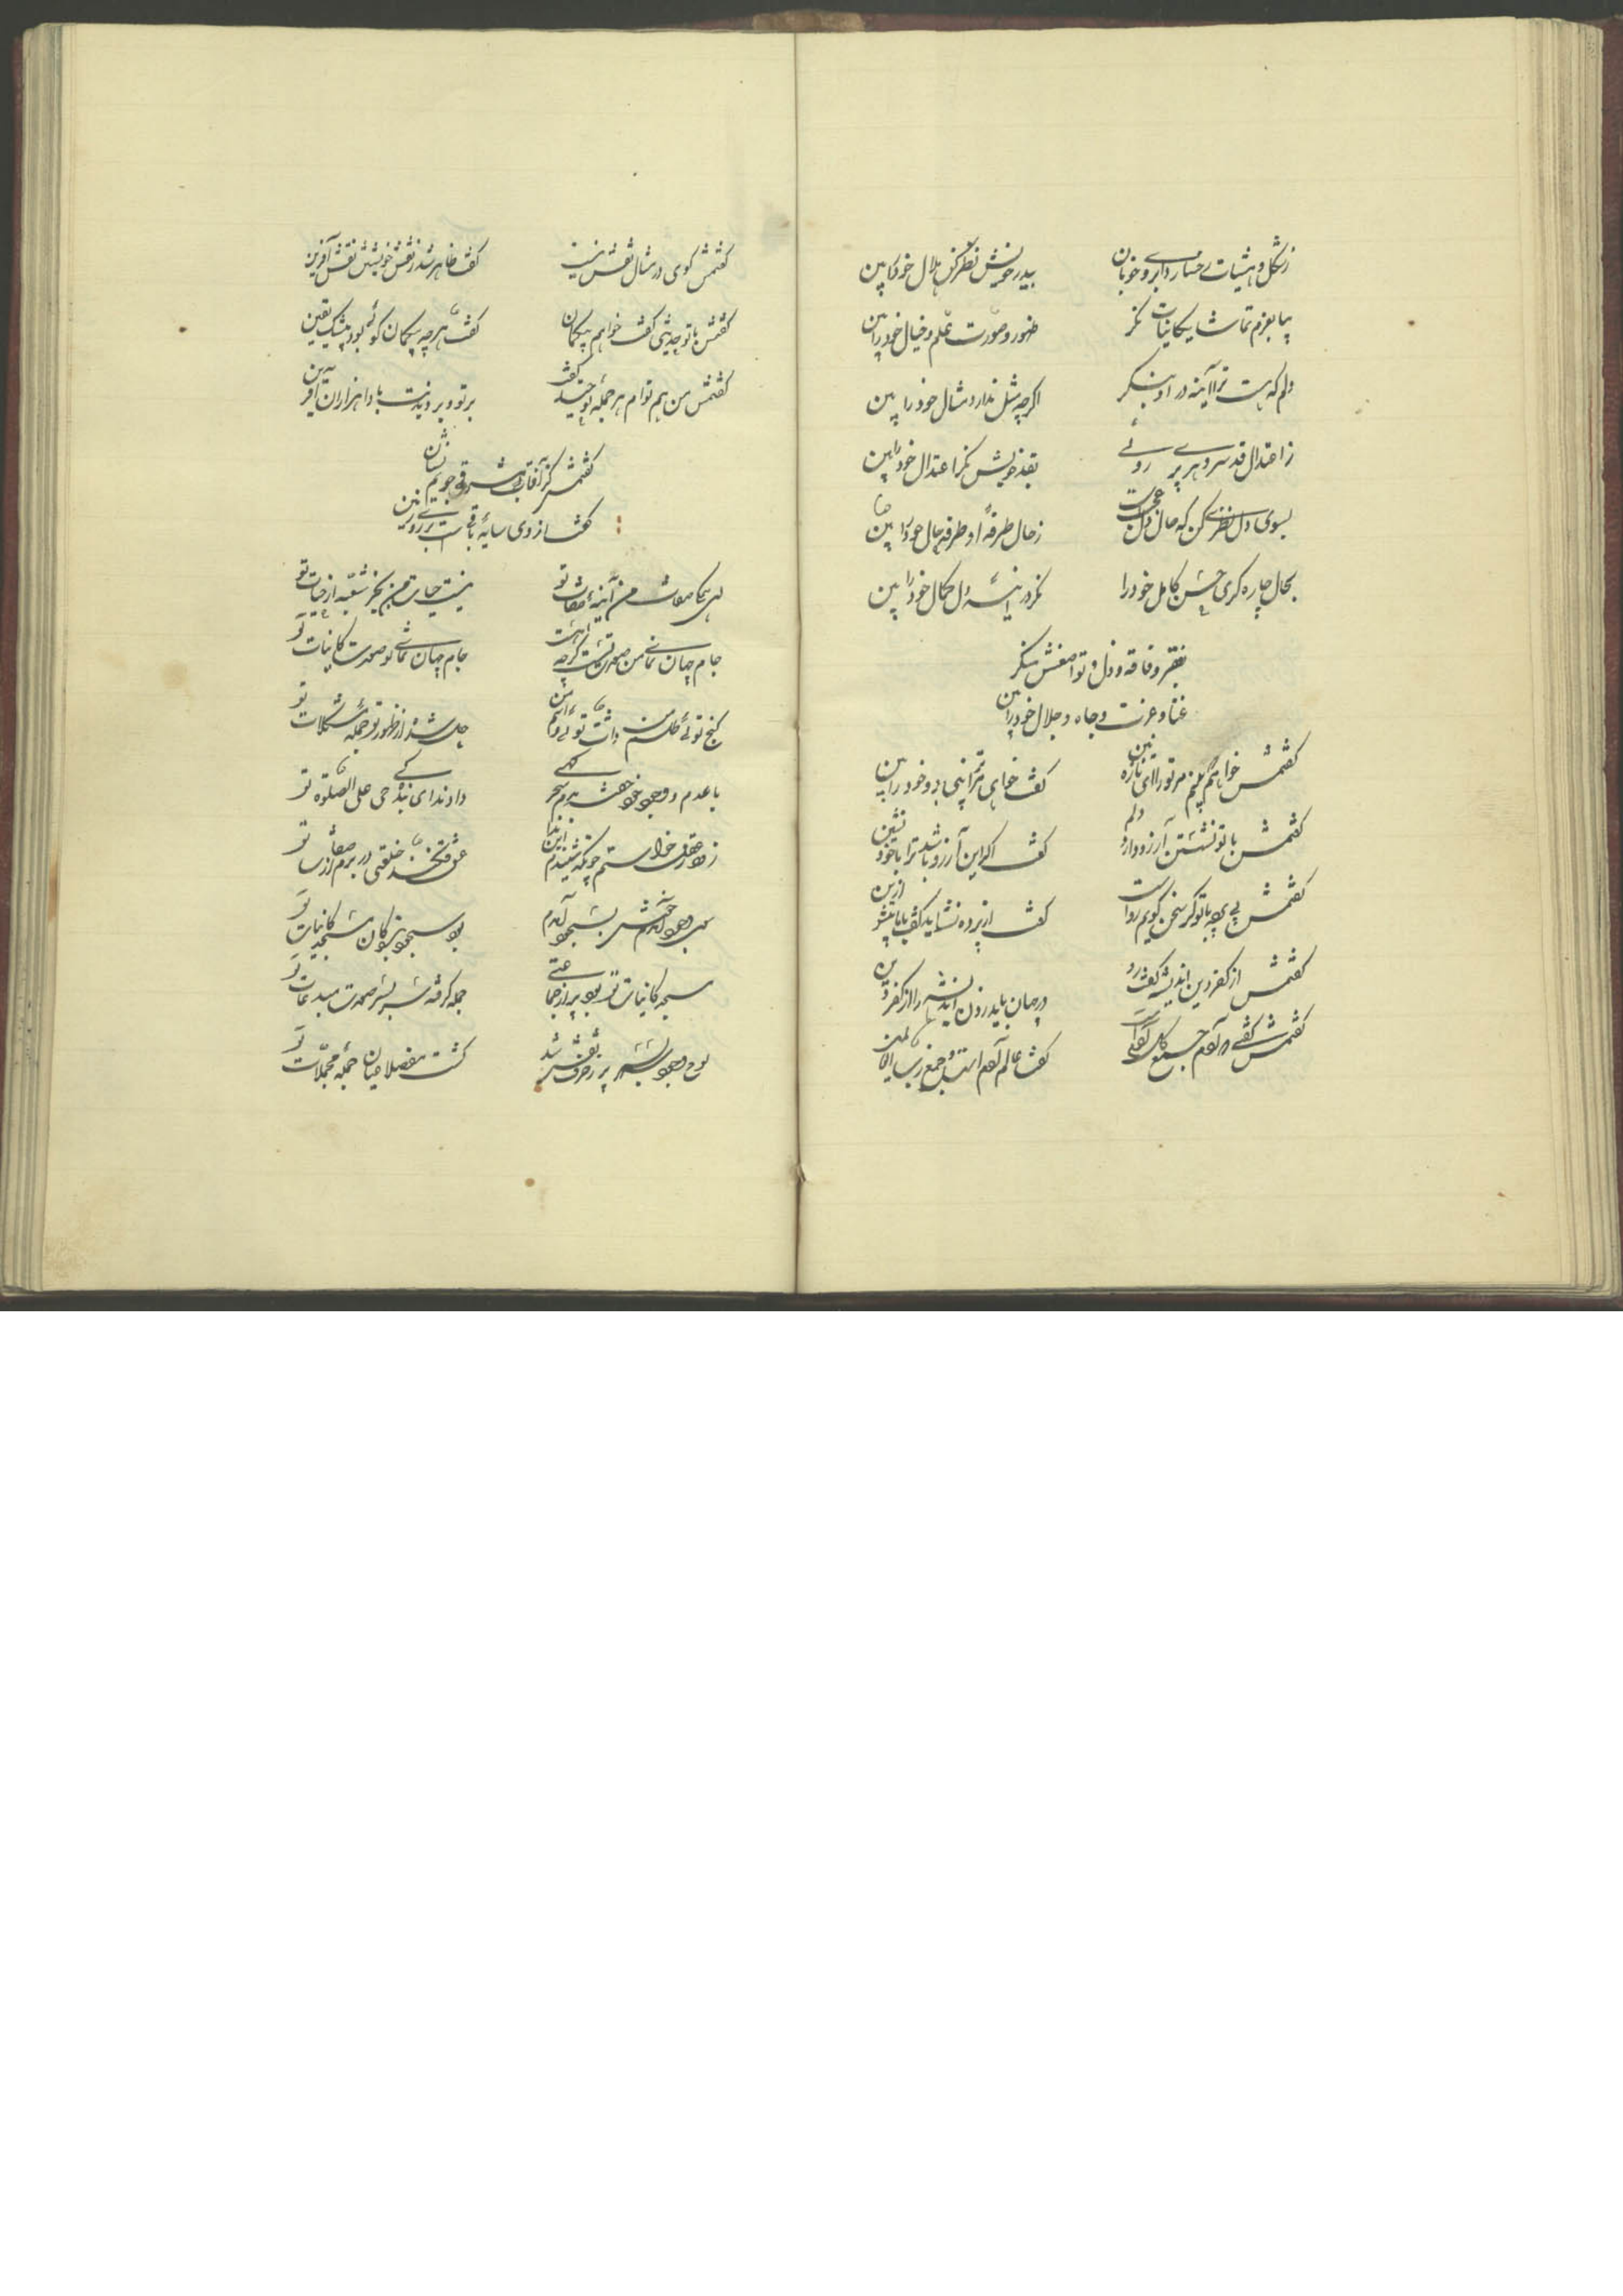 زشکل و هیئات رخسار و ابروی خوبان
ببدر خویش نظر کن هلال خود را ببین
بیا بعزم تماشای کائنات نگر
ظهور و صورت علم و خیال خود را ببین
دلم که هست ترا آینه در او بنگر
اگرچه مثل ندارد مثال خود را ببین
ز اعتدال قد سرو هر پری روئی
بقد خویش نگر اعتدال خود را ببین
بسوی دل نظری کن که حال دل عجبست
ز حال طرفهٔ او طرفه حال خود را ببین
بحال چاره گری حسن کامل خود را
نگر در آینهٔ دل کمال خود را ببین
بفقر و فاقه و ذل و تواضعش منگر
غنا و عزت و جاه و جلال خود را ببین
گفتمش خواهم که بینم مر تو را ای نازنین
گفت خواهی گر مرا بینی برو خود را ببین
گفتمش با تو نشستن آرزو دارد دلم
گفت اگر این آرزو باشد ترا با خود نشین
گفتمش بی پرده با تو گر سخن گویم رواست
گفت از پرده نشاید گفت با ما بیش ازین
گفتمش از کفر و دین اندیشه گفت رو
در جهان باید زدن اندیشه را از کفر و دین
گفتمش گفتی که آدم جمع کل
گفت عالم آدم است و جمع رب العالمین
گفتمش گوی در مثال نقش نیست
گفت ظاهر شد ز نقش خویشتن نقش آفرین
گفتمش با تو حدیثی گفت خواهم بیگمان
گفت هرچه بیگمان گوئی بود بیشک یقین
گفتمش من هم توام هر جمله تو خندید گفت
بر تو و بر دیدنت بادا هزاران آفرین
گفتمش کز آفتاب مشرقی جویم نشان
گفت از وی سایهٔ باقیست بر روی زمین
ای همگی صفات من آینهٔ صفات تو
نیست حیات من بجز شعبهٔ از حیات تو
جام جهان نمای من صورت تست گرچه هست
جام جهان نمای تو صورت کائنات تو
گنج توئی طلسم من ذات توئی و اسم من
حل شده از ظهور تو جملهٔ مشکلات تو
با عدم و وجود خود خفته بدم سحرگهی
داد ندای بندگی حی علی الصلوة تو
سجدهٔ کائنات تو بود پر از جماعتی
جمله گرفته سر بسر صورت مبدعات تو
لوح وجود سر بسر پر ز حروف نقش شد
گشت مفصلا عیان جملهٔ مجملات تو